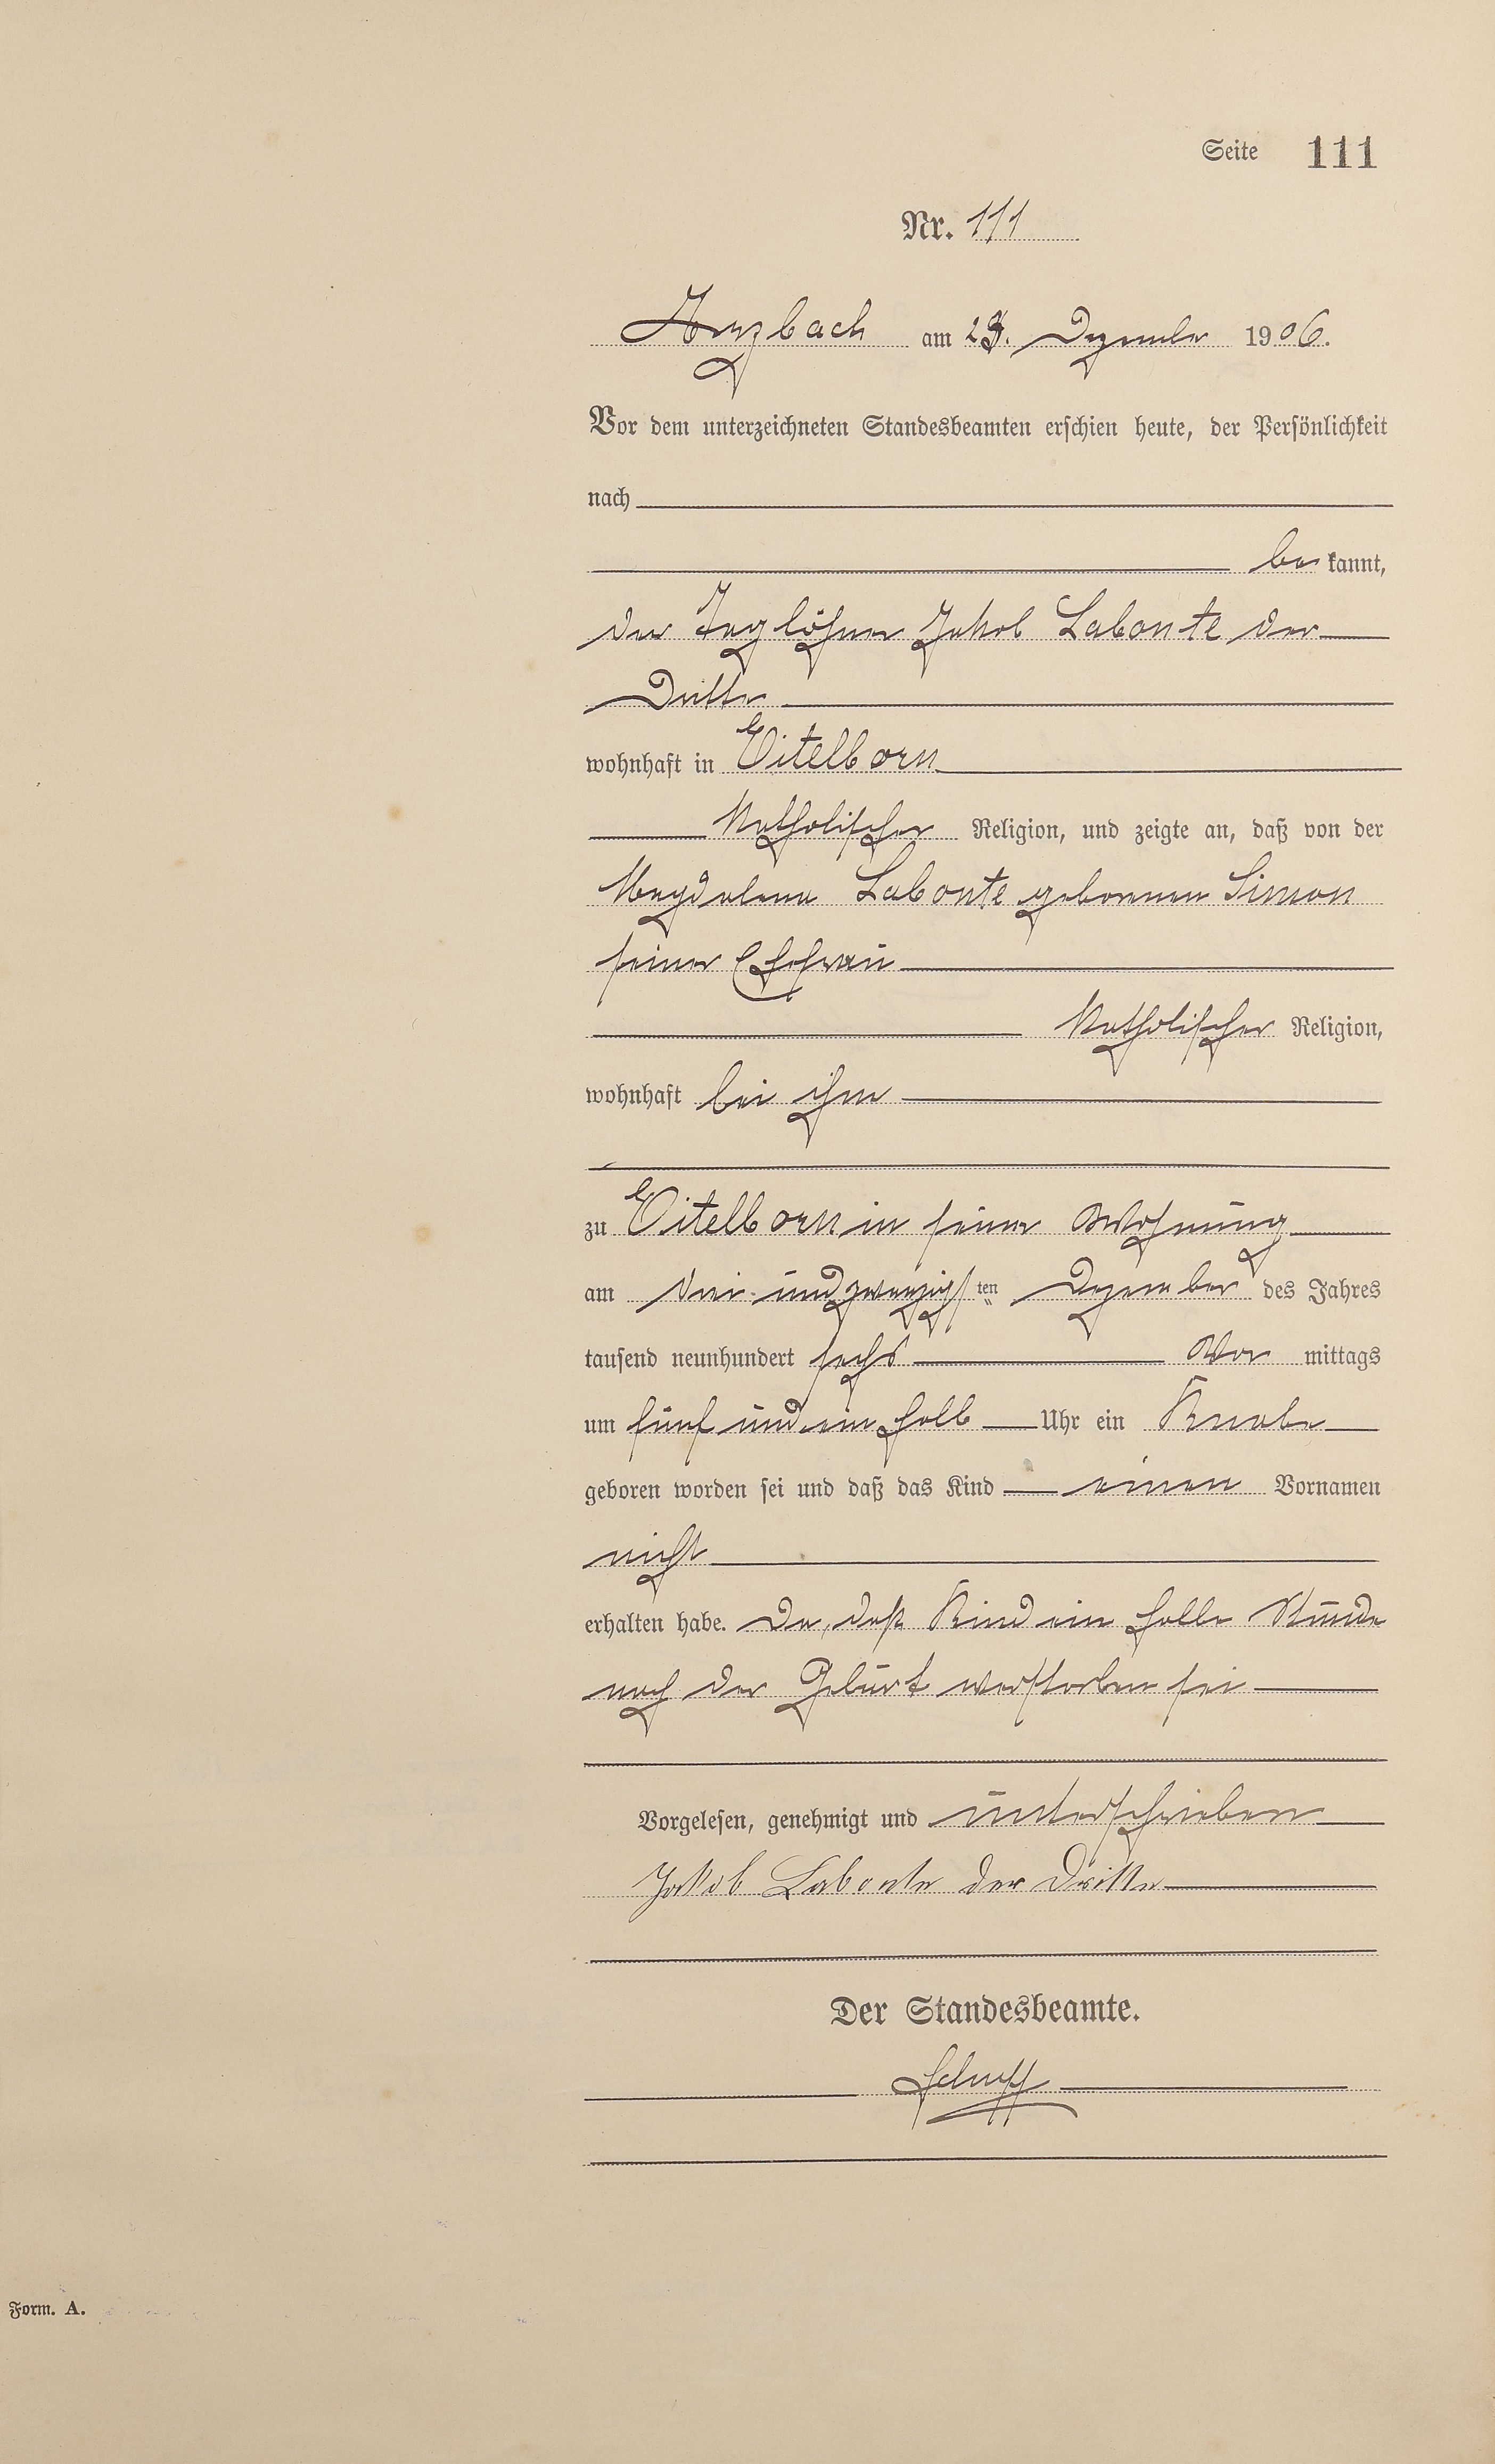 Seite 111
Nr. 111
Arzbach am 23. Dezember 1906.
Vor dem unterzeichneten Standesbeamten erschien heute, der Persönlichkeit
nach
be kannt,
der Taglöhner Jakob Labonte der
Dritte
wohnhaft in Eitelborn
Katholischer Religion, und zeigte an, daß von der
Magdalena Labonte geborenen Simon
seiner Ehefrau
Katholischer Religion,
wohnhaft bei ihm
zu Eitelborn in seiner Wohnung
am drei und zwanzigsten Dezember des Jahres
tausend neunhundert sechs Vor mittags
um fünf und ein halb Uhr ein Knabe
geboren worden sei und daß das Kind einen Vornamen
nicht
erhalten habe. Da, daß Kind ein halbe Stunde
nach der Geburt verstorben sei
Vorgelesen, genehmigt und unterschrieben
Jakob Labonte der Dritte
Der Standesbeamte.
Form. A.